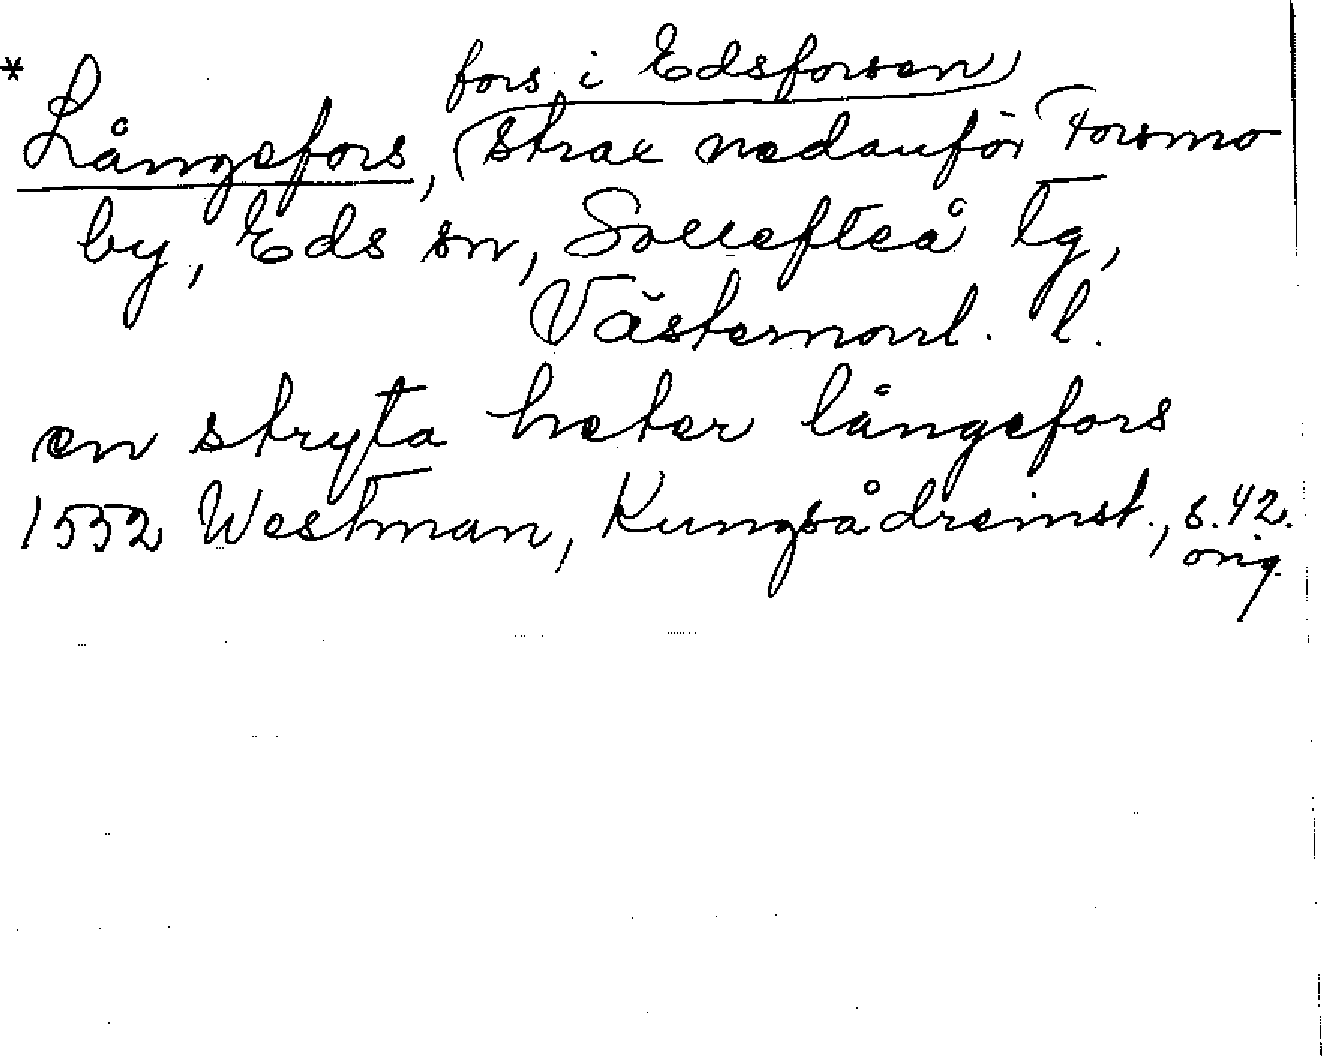 fors i Edsforsen)
* Långefors, (strax nedanför Forsmo
by, Eds sn, Sollefteå tg,
Västernorrl. l.
en stryta heter långefors
1552 Westman, Kungsådreinst., s. 42.
orig.